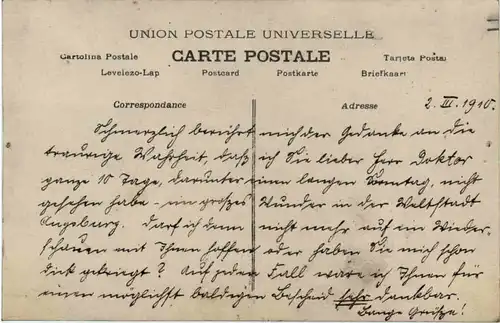 UNION POSTALE UNIVERSELLE
Cartolina Postale CARTE POSTALE Tarjeta Postal
Levelezo-Lap Postcard Postkarte Briefkaart
Correspondance Adresse 2. III. 1910.
Schmerzlich berührt mich der Gedanke an die
traurige Wahrheit, daß ich Sie lieber Herr Doktor
ganze 10 Tage, darunter einen langen Sonntag, nicht
gesehen habe - ein großes Wunder in der Weltstadt
Augsburg. Darf ich denn nicht mehr auf ein Wieder-
schauen mit Ihnen hoffen oder haben Sie mich schon
dick gekriegt? Auf jeden Fall wäre ich Ihnen für
einen möglichst baldigen Bescheid sehr dankbar.
Bange Grüße!